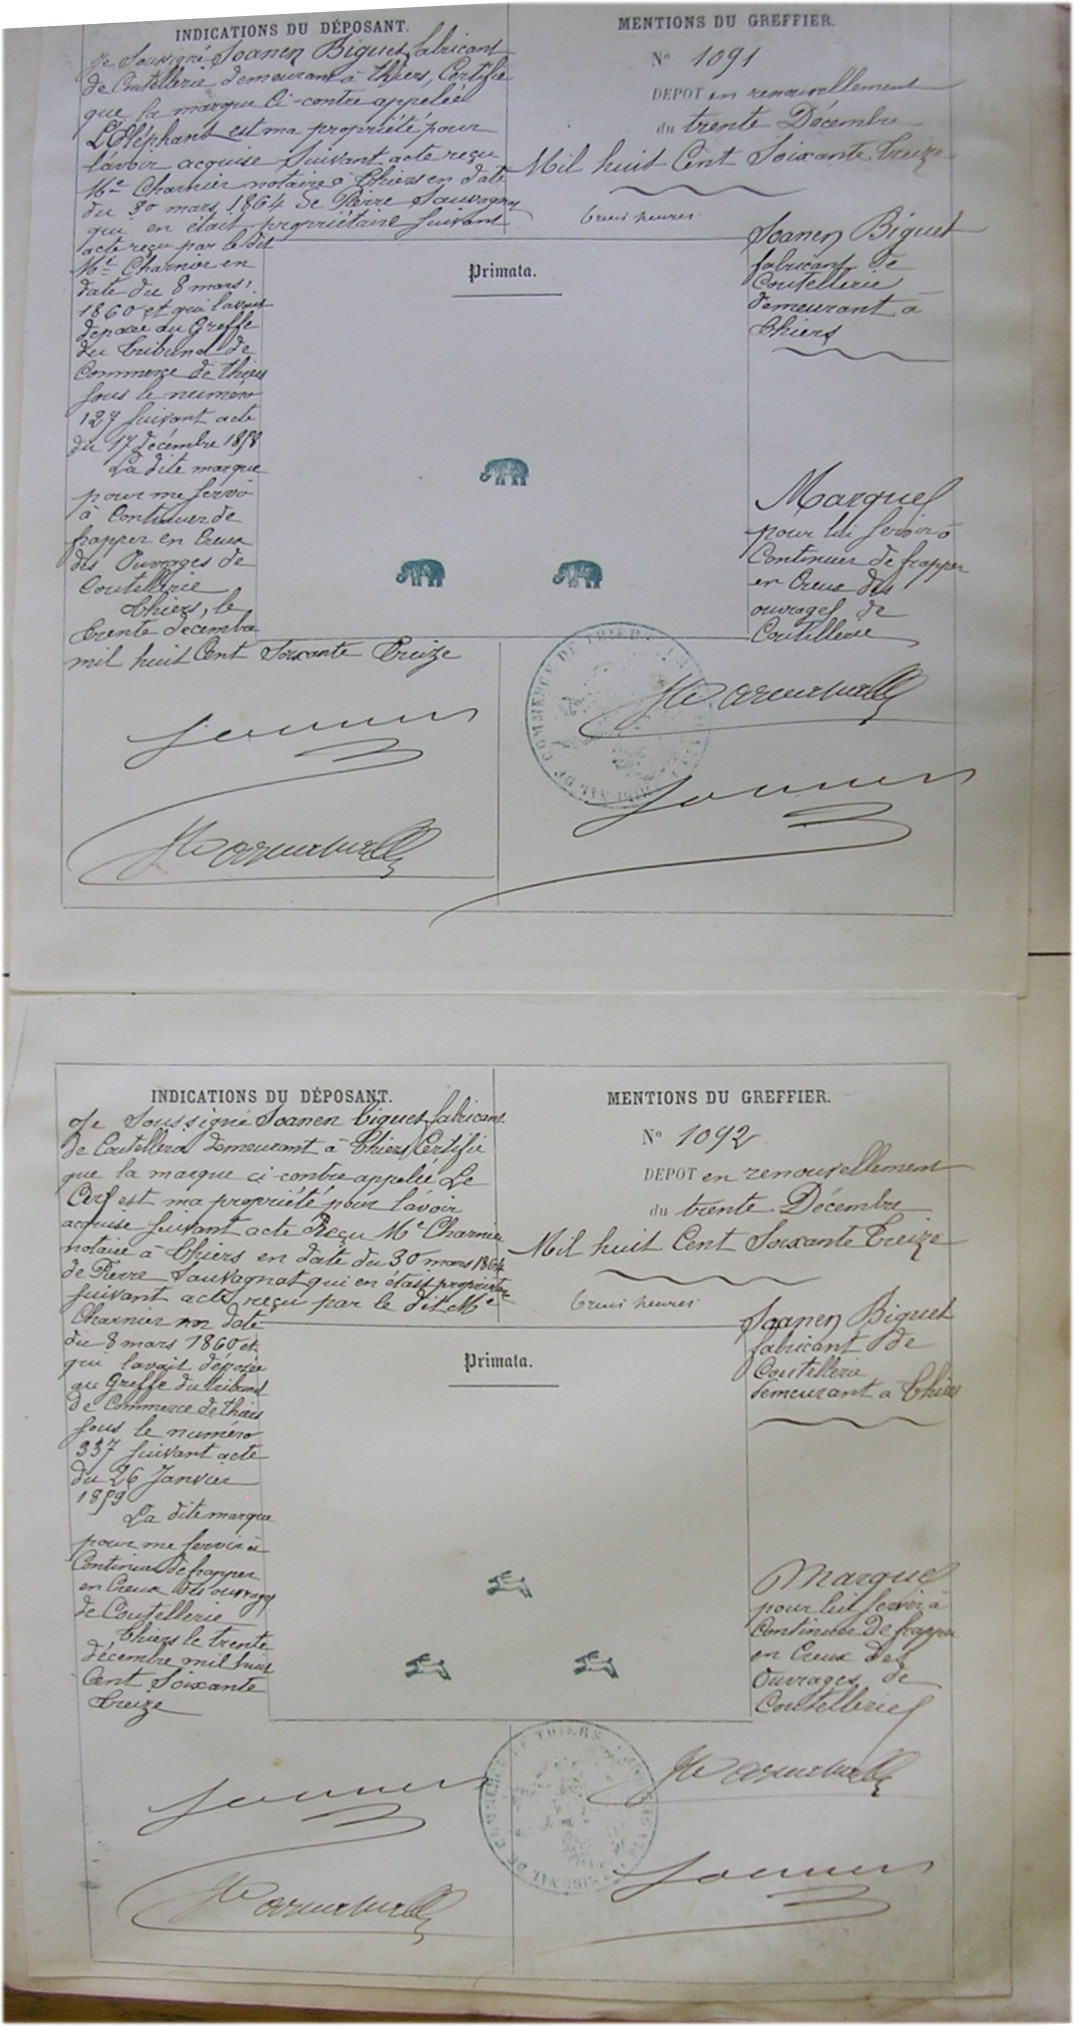 INDICATIONS DU DÉPOSANT.
Je Soussigné Soanen Biguet fabricant
de Coutellerie demeurant à Thiers, Certifie
que la marque Ci-contre appelée
L'Eléphant est ma propriété pour
lavoir acquise Suivant acte reçu
Me Charnier notaire à Thiers en date
du 30 mars 1864 de Pierre Sauvagnat
qui en était propriétaire Suivant
acte reçu par le dit
Me Charnier en
date du 8 mars
1860 et qui l'avait
déposée au Greffe
du Tribunal de
Commerce de Thiers
sous le numéro
127 suivant acte
du 17 Décembre 1858
La dite marque
pour me servir
à Continuer de
frapper en Creux
des Ouvrages de
Coutellerie
Thiers, le
trente décembre
mil huit Cent Soixante Treize
MENTIONS DU GREFFIER.
No 1091
DEPOT en renouvellement
du trente Décembre
Mil huit Cent Soixante Treize
trois heures
Soanen Biguet
fabricant de
Coutellerie
demeurant à
Thiers
Primata.
Marque
pour lui servir à
Continuer de frapper
en Creux des
ouvrages de
Coutellerie
INDICATIONS DU DÉPOSANT.
Je Soussigné Soanen Biguet fabricant
de Coutellerie demeurant à Thiers Certifie
que la marque ci-contre appelée Le
Cerf est ma propriété pour lavoir
acquise suivant acte Reçu Me Charnier
notaire à Thiers en date du 30 mars 1864
de Pierre Sauvagnat qui en était propriétaire
suivant acte reçu par le dit Me
Charnier en date
du 8 mars 1860 et
qui lavait déposée
au Greffe du tribunal
de Commerce de thiers
sous le numéro
337 suivant acte
du 26 Janvier
1859
La dite marque
pour me servir à
Continuer de frapper
en Creux des ouvrages
de Coutellerie
Thiers le trente
décembre mil huit
Cent Soixante
treize
MENTIONS DU GREFFIER.
No 1092
DEPOT en renouvellement
du trente Décembre
Mil huit Cent Soixante Treize
trois heures
Soanen Biguet
fabricant de
Coutellerie
demeurant à Thiers
Primata.
Marque
pour lui servir à
Continuer de frapper
en Creux des
Ouvrages de
Coutellerie